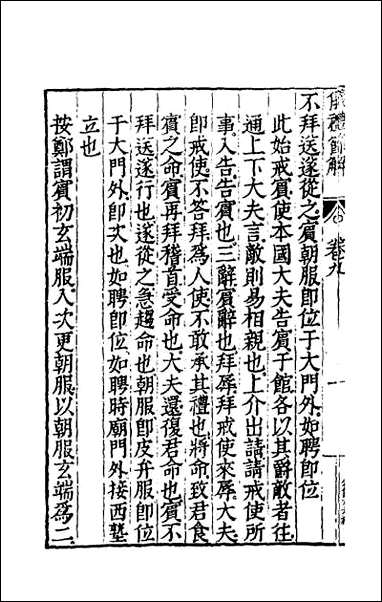 儀禮節解 卷九
不拜送遂從之賓朝服即位于大門外如聘即位
此始戒賓使本國大夫告賓于館各以其爵敵者往
通上下大夫言敵則易相親也上介出請請戒使所
事入告告賓也三辭賓辭也拜辱拜戒使來辱大夫
即戒使不答拜爲人使不敢承其禮也將命致君食
賓之命賓再拜稽首受命也大夫還復君命也賓不
拜送遂行也遂從之急趨命也朝服即皮弁服即位
于大門外即次也如聘即位如聘時廟門外接西塾
立也
按鄭謂賓初玄端服入次更朝服以朝服玄端爲二